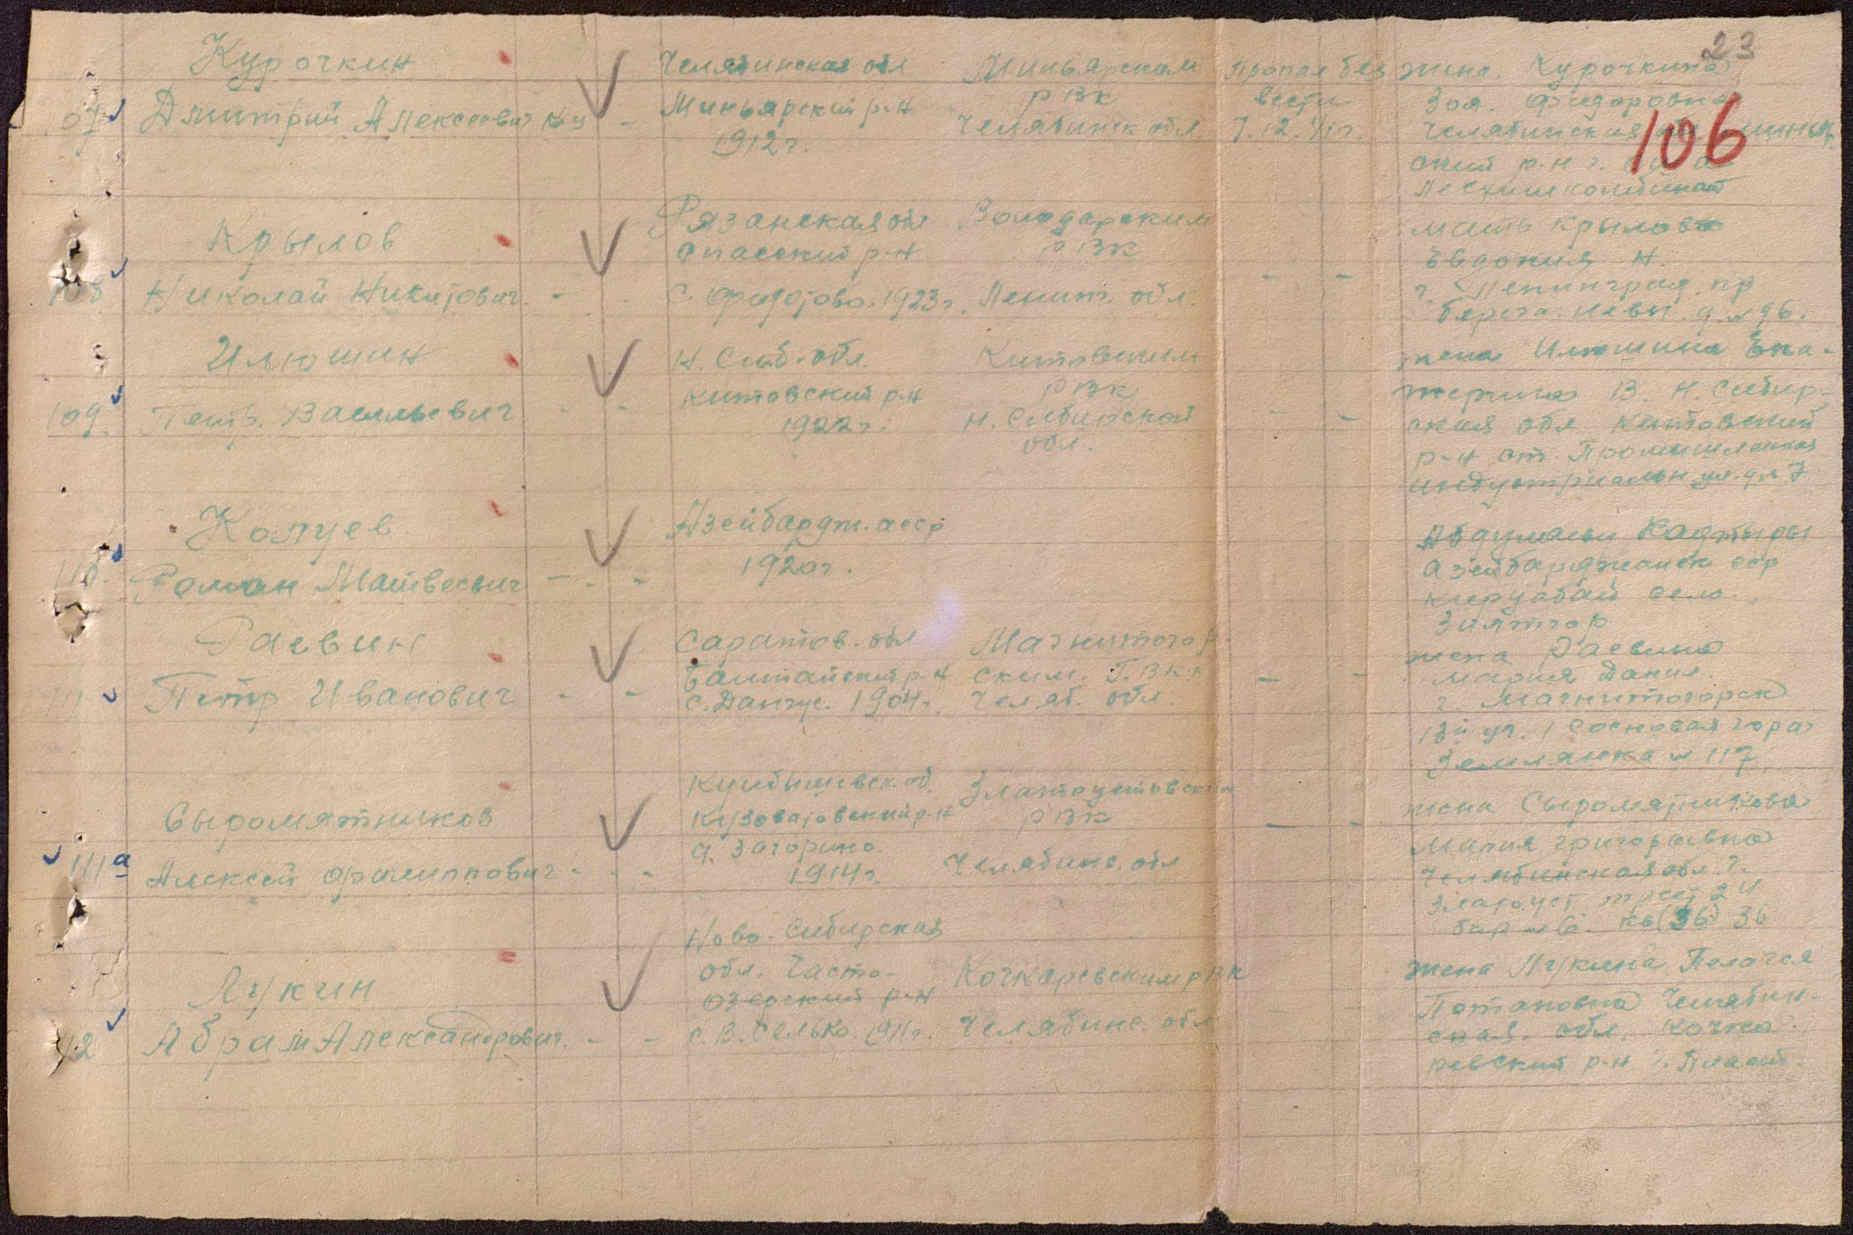 23
106
Курочкин
107 Дмитрий Алексеевич
Челябинская обл
Миньярский р-н
1912 г.
Миньярским
РВК
Челябинск обл
Пропал без
вести
7.12.41 г.
жена. Курочкина
Зоя. Федоровна
Челябинская
ский р-н г.
Лесхимкомбинат
Крылов
108 Николай Никитович - -
Рязанская обл
Спасский р-н
с. Федотово. 1923 г.
Володарским
РВК
Ленинг. обл.
- -
мать Крылова
Евдокия Н.
г. Ленинград. пр
берега. Невы. д. № 96.
Илюшин
109. Петр. Васильевич - -
Н. Сиб. обл.
Китовский р-н
1922 г.
Китовским
РВК
Н. Сибирской
обл.
- -
жена Илюшина Ека-
терина В. Н. Сибир-
ская обл Китовский
р-н ст. Промышленная
индустриальн ул. д № 7
Капуев
110. Роман Матвеевич - - -
Азейбардж. асср
1920 г.
Азейбарджанск сср
село.
Раевин
111 Петр Иванович - -
Саратов. обл
р-н
1904 г.
Магнитогор
ским. Г.В.К.
Челяб. обл.
- -
жена Раевина
Мария Данил.
г. Магнитогорск
13й уч. 1 Сосновая гора
Землянка № 117
Сыромятников
111а Алексей Филиппович - - -
Куйбышевск. об.
Кузоватовский р-н
д. Загорино.
1914 г.
Златоустовским
РВК
Челябинс. обл
- -
жена Сыромятникова
Мария Григорьевна
Челябинская обл. г.
Златоуст
бар № 6. кв (36) 36
Лукин
112 Абрам Александрович. - -
Ново-Сибирская
обл. Часто-
озерский р-н
1911 г.
Кочкаревским РВК
Челябинс. обл
- -
жена Лукина Пелагея
Потаповна Челябин-
ская. обл. Кочка-
ревский р-н г. Пласт.